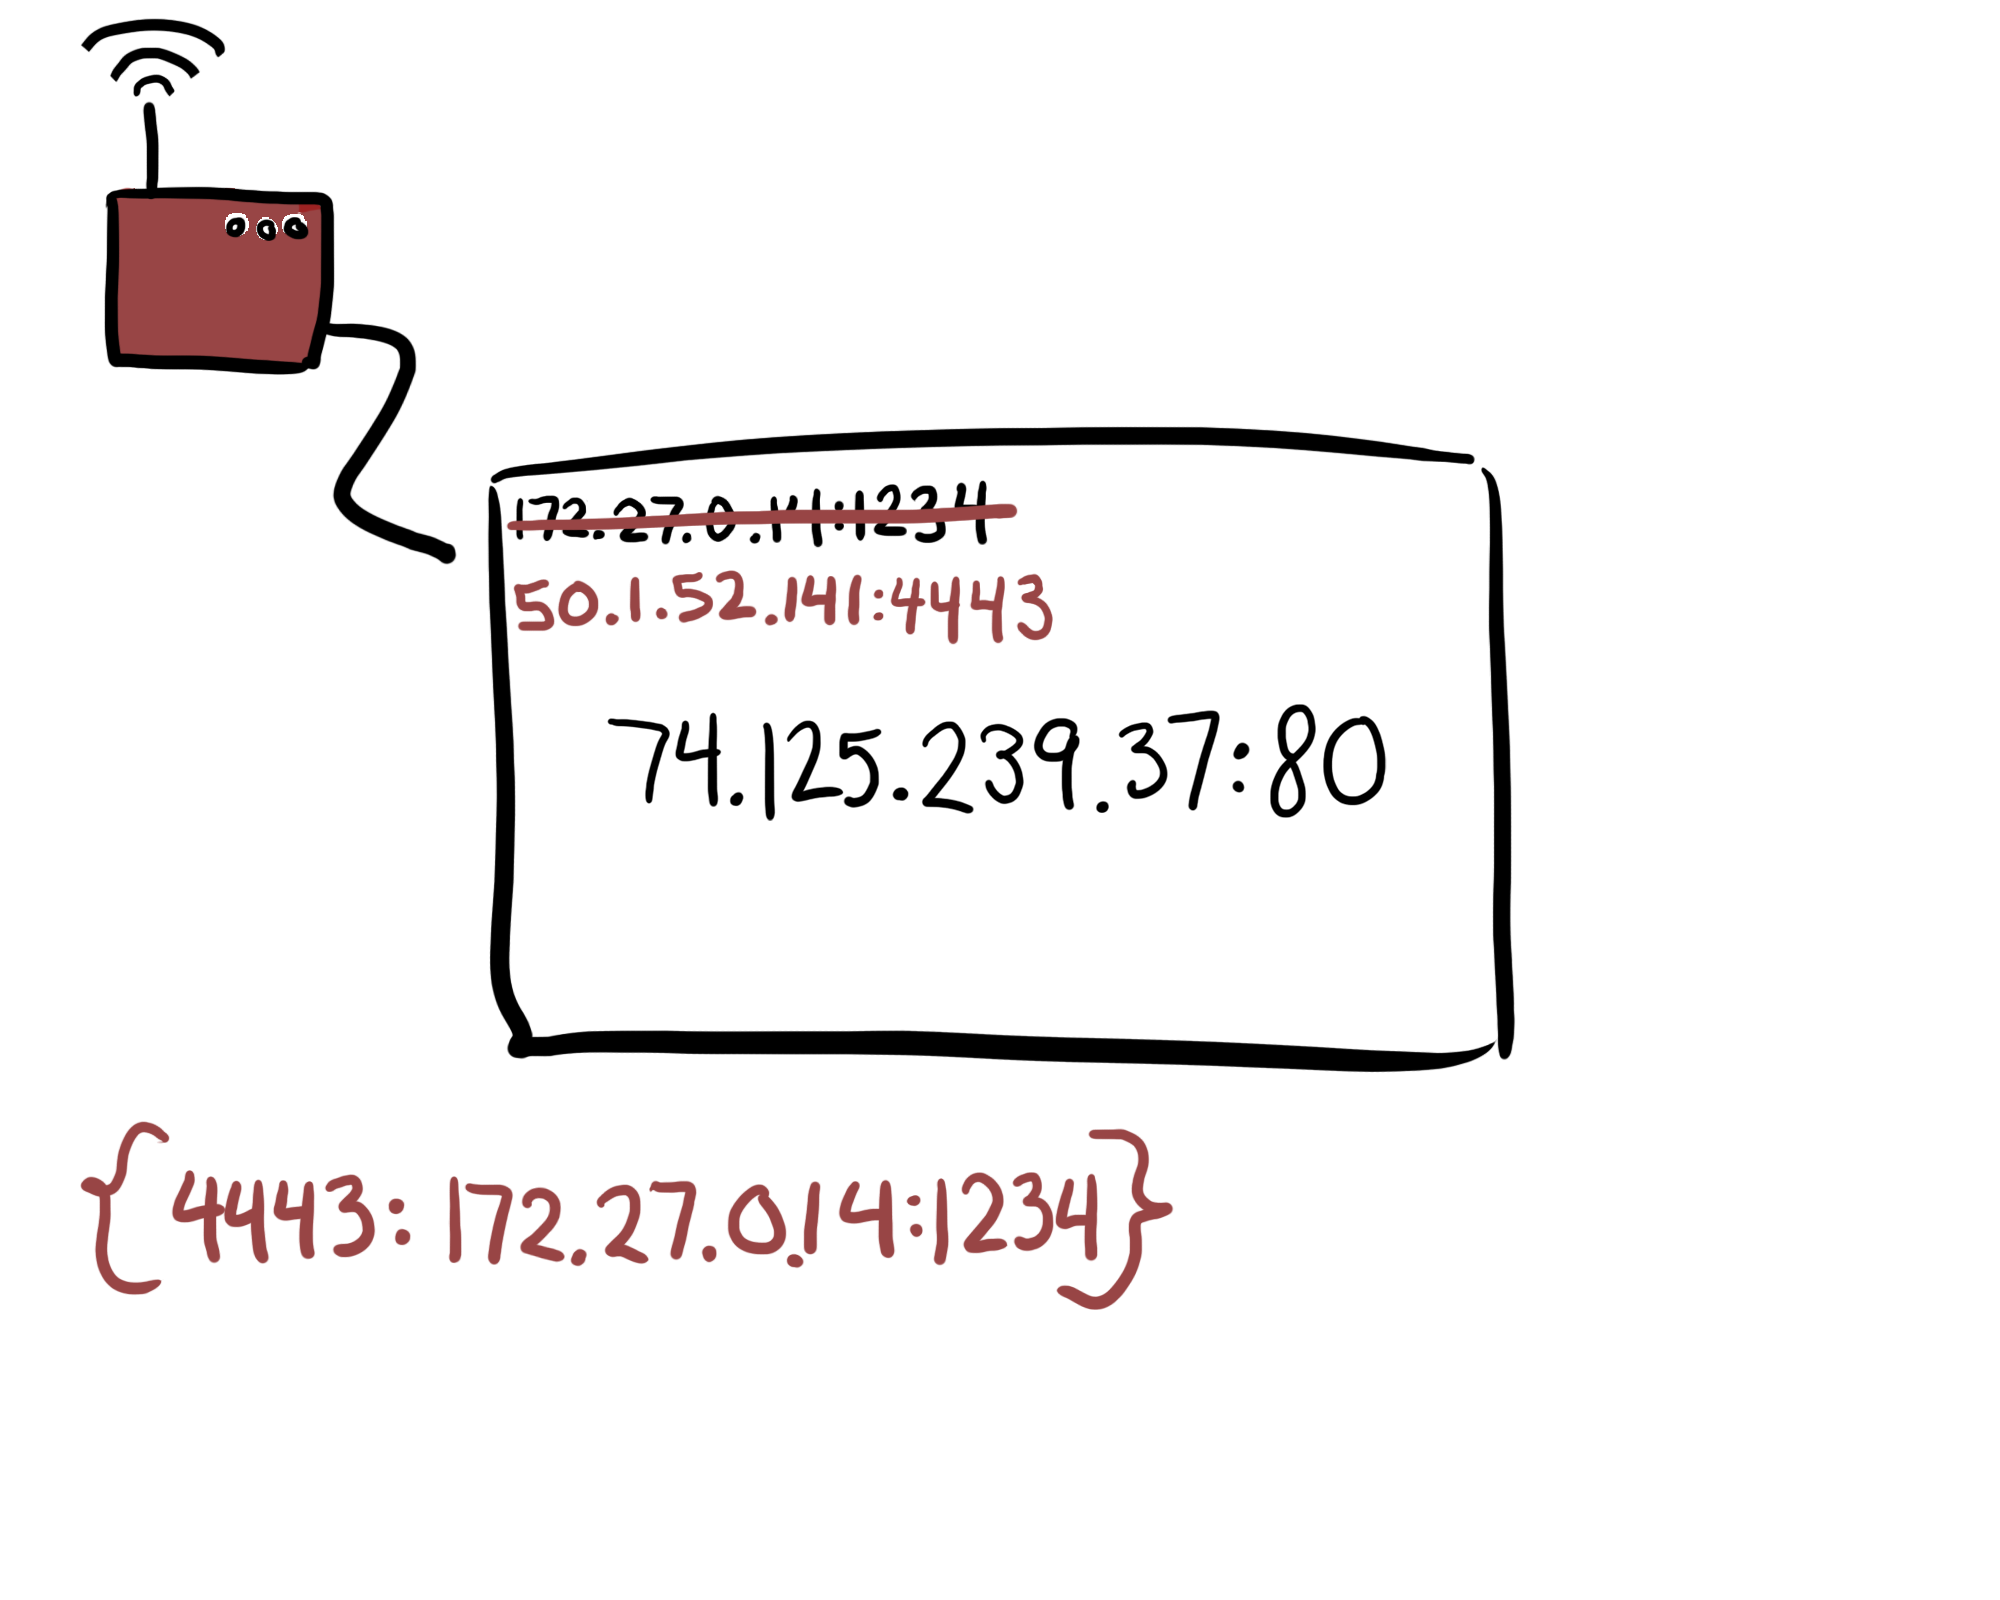 172.27.0.14:1234
50.1.52.141:4443
74.125.239.37:80
{4443: 172.27.0.14:1234}